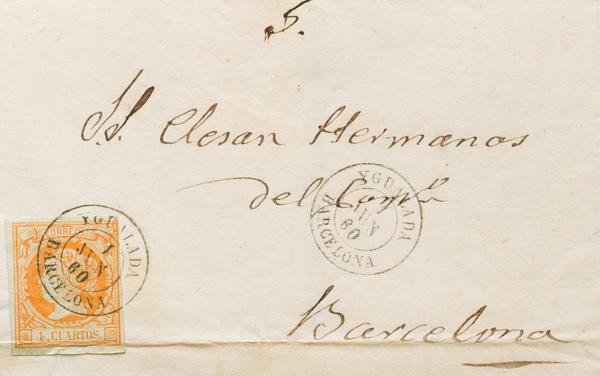 S.
S.S. Clesan Hermanos
del Comº
Barcelona
YGUALADA
1
JUN
60
BARCELONA
CORREOS
4 CUARTOS.
YGUALADA
1
JUN
60
BARCELONA